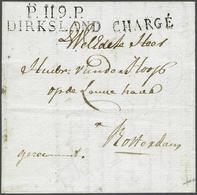 P.119.P.
DIRKSLAND CHARGÉ
WelEdele Heer
Heer
van der Hoop
op de Leuve haave
Rotterdam